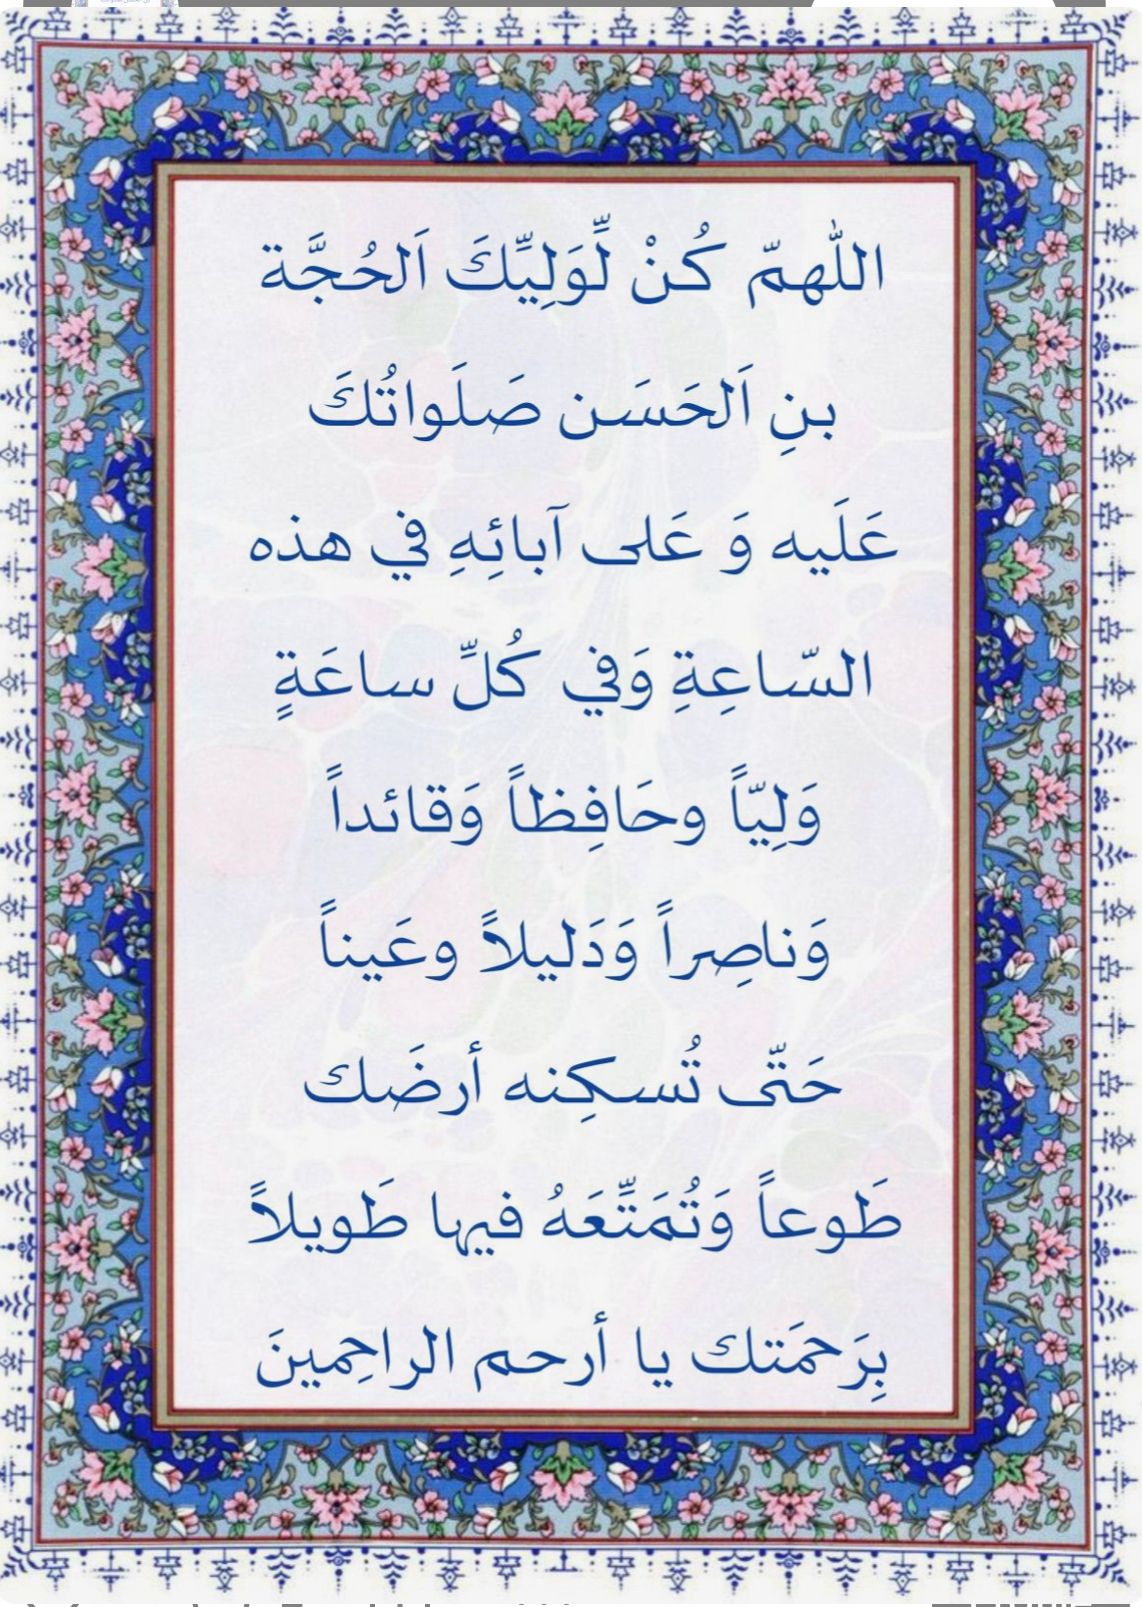 اللّٰهمّ كُنْ لِّوَلِيِّكَ اَلحُجَّة
بنِ اَلحَسَن صَلَواتُكَ
عَلَيه وَ عَلى آبائِهِ في هذه
السّاعِةِ وَفي كُلِّ ساعَةٍ
وَلِيّاً وحَافِظاً وَقائداً
وَناصِراً وَدَليلاً وعَيناً
حَتّى تُسكِنه أرضَك
طَوعاً وَتُمَتِّعَهُ فيها طَويلاً
بِرَحمَتك يا أرحم الراحِمينَ